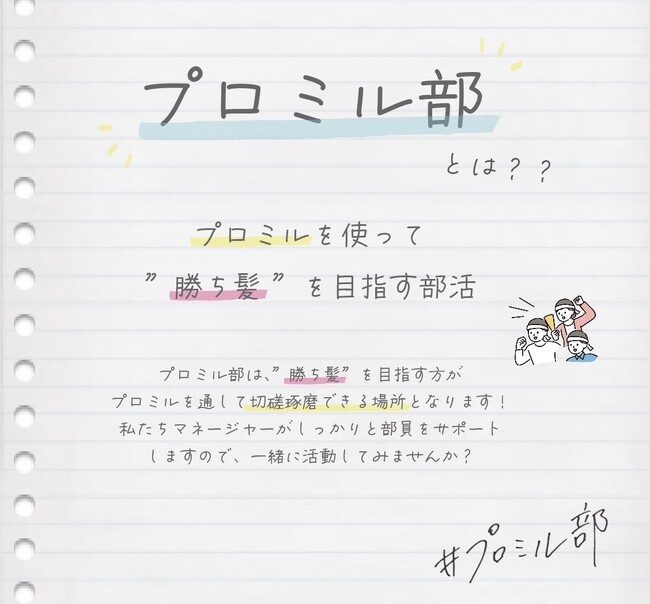 プロミル部
とは??
プロミルを使って
”勝ち髪”を目指す部活
プロミル部は、”勝ち髪”を目指す方が
プロミルを通して切磋琢磨できる場所となります!
私たちマネージャーがしっかりと部員をサポート
しますので、一緒に活動してみませんか?
#プロミル部